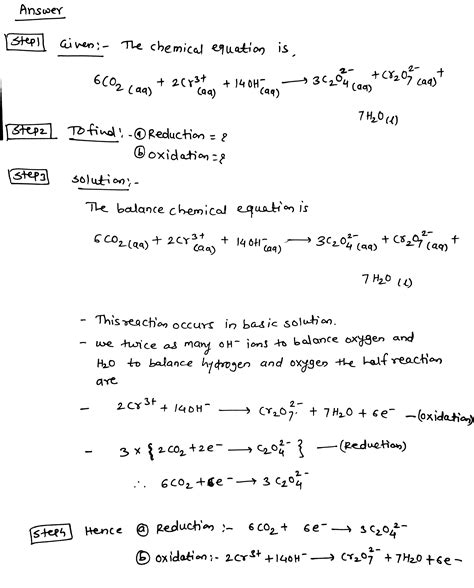 Answer
Step1 Given:- The chemical equation is,
6CO2 (aq) + 2Cr3+ (aq) + 14OH- (aq) ⟶ 3C2O4 2- (aq) + Cr2O7 2- (aq) +
7H2O(l)
Step2 To find:- ⓐ Reduction = ?
ⓑ oxidation = ?
Step3 solution:-
The balance chemical equation is
6CO2 (aq) + 2Cr3+ (aq) + 14OH- (aq) ⟶ 3C2O4 2- (aq) + Cr2O7 2- (aq) +
7H2O (l)
- This reaction occurs in basic solution.
- we twice as many OH- ions to balance oxygen and
H2O to balance hydrogen and oxygen the half reaction
are
- 2Cr3+ + 14OH- ⟶ Cr2O7 2- + 7H2O + 6e- —(oxidation)
- 3 × { 2CO2 + 2e- ⟶ C2O4 2- } —(Reduction)
∴ 6CO2 + 6e- ⟶ 3C2O4 2-
Step4 Hence ⓐ Reduction:- 6CO2 + 6e- ⟶ 3C2O4 2-
ⓑ oxidation:- 2Cr3+ + 14OH- ⟶ Cr2O7 2- + 7H2O + 6e-